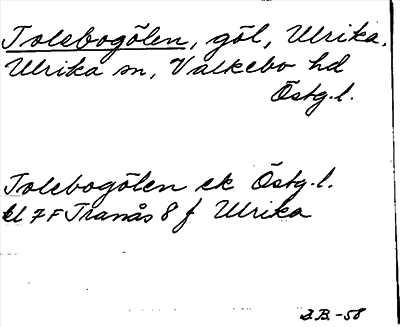 Tolebogölen, göl, Ulrika.
Ulrika sn, Valkebo hd
Östg.l.
Tolebogölen ek Östg.l.
bl 7F Tranås 8 f Ulrika
B.B.-58